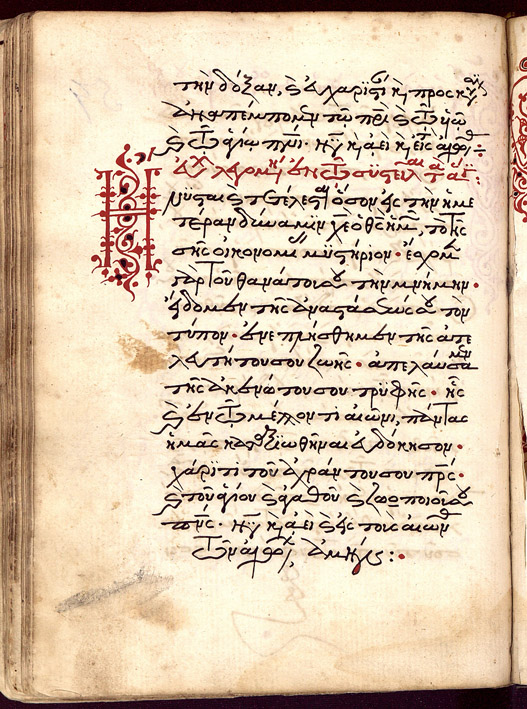 τὴν δόξαν, καὶ εὐχαριστί(αν) καὶ προσκύ(νησιν)
ἀναπέμπομεν τῶ πρι καὶ τῶ υἱῶ
καὶ τῶ ἁγίω πνι· νῦν καὶ ἀεὶ καὶ εἰς
Εὐχ(ὴ) λεγομ(έν)η ἐν τῶ συστεῖλαι τὰ ἅγι(α):
Ἤνυσται καὶ τετέλεσται ὅσον εἰς τὴν ἡμε
τέραν δύναμιν χε ὁ θς ἡμῶν, τὸ τῆς
σῆς οἰκονομίας μυστήριον· ἔσχομεν
γὰρ τοῦ θανάτου σου τὴν μνήμην·
εἴδομεν τῆς ἀναστάσεώς σου τὸν
τύπον· ἐνεπλήσθημεν τῆς ἀτε
λευτήτου σου ζωῆς· ἀπελαύσαμεν
τῆς ἀκενώτου σου τρυφῆς· ἧς
καὶ ἐν τῶ μέλλοντι αἰῶνι, πάντας
ἡμᾶς καταξιωθῆναι εὐδόκησον·
χάριτι τοῦ ἀχράντου σου πρς·
καὶ τοῦ ἁγίου καὶ ἀγαθοῦ καὶ ζωοποιοῦ σου
πνς· νῦν καὶ ἀεὶ καὶ εἰς τοὺς αἰῶν(ας)
τῶν αἰώνων, ἀμήν:·